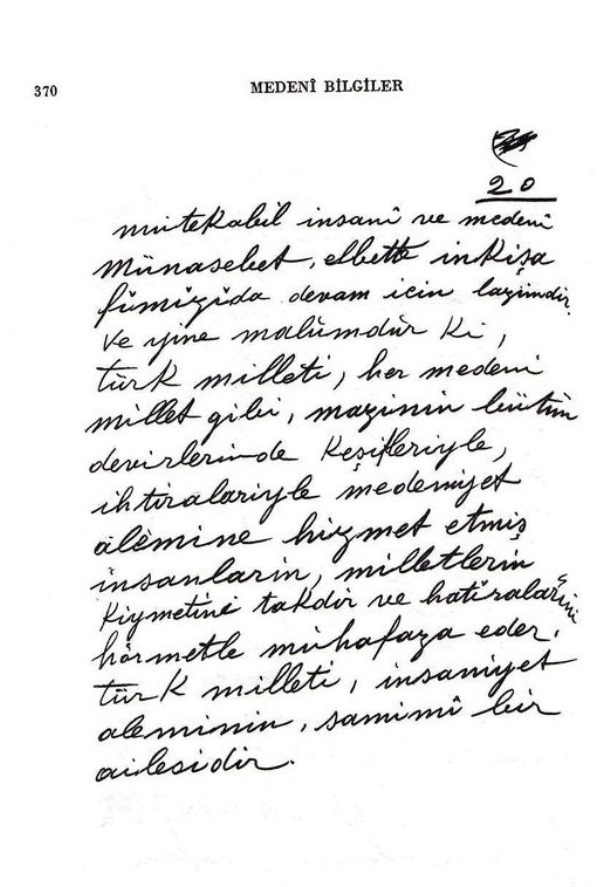 370
MEDENÎ BİLGİLER
20
mütekabil insanî ve medenî
münasebet, elbette inkişa
fımızida devam için lazımdır.
Ve yine malûmdur ki,
türk milleti, her medeni
millet gibi, mazinin bütün
devirlerinde keşifleriyle,
ihtiralariyle medeniyet
âlemine hizmet etmiş
insanların, milletlerin
kıymetini takdir ve hatıralarını
hörmetle mühafaza eder.
türk milleti, insaniyet
aleminin, samimî bir
ailesidir.